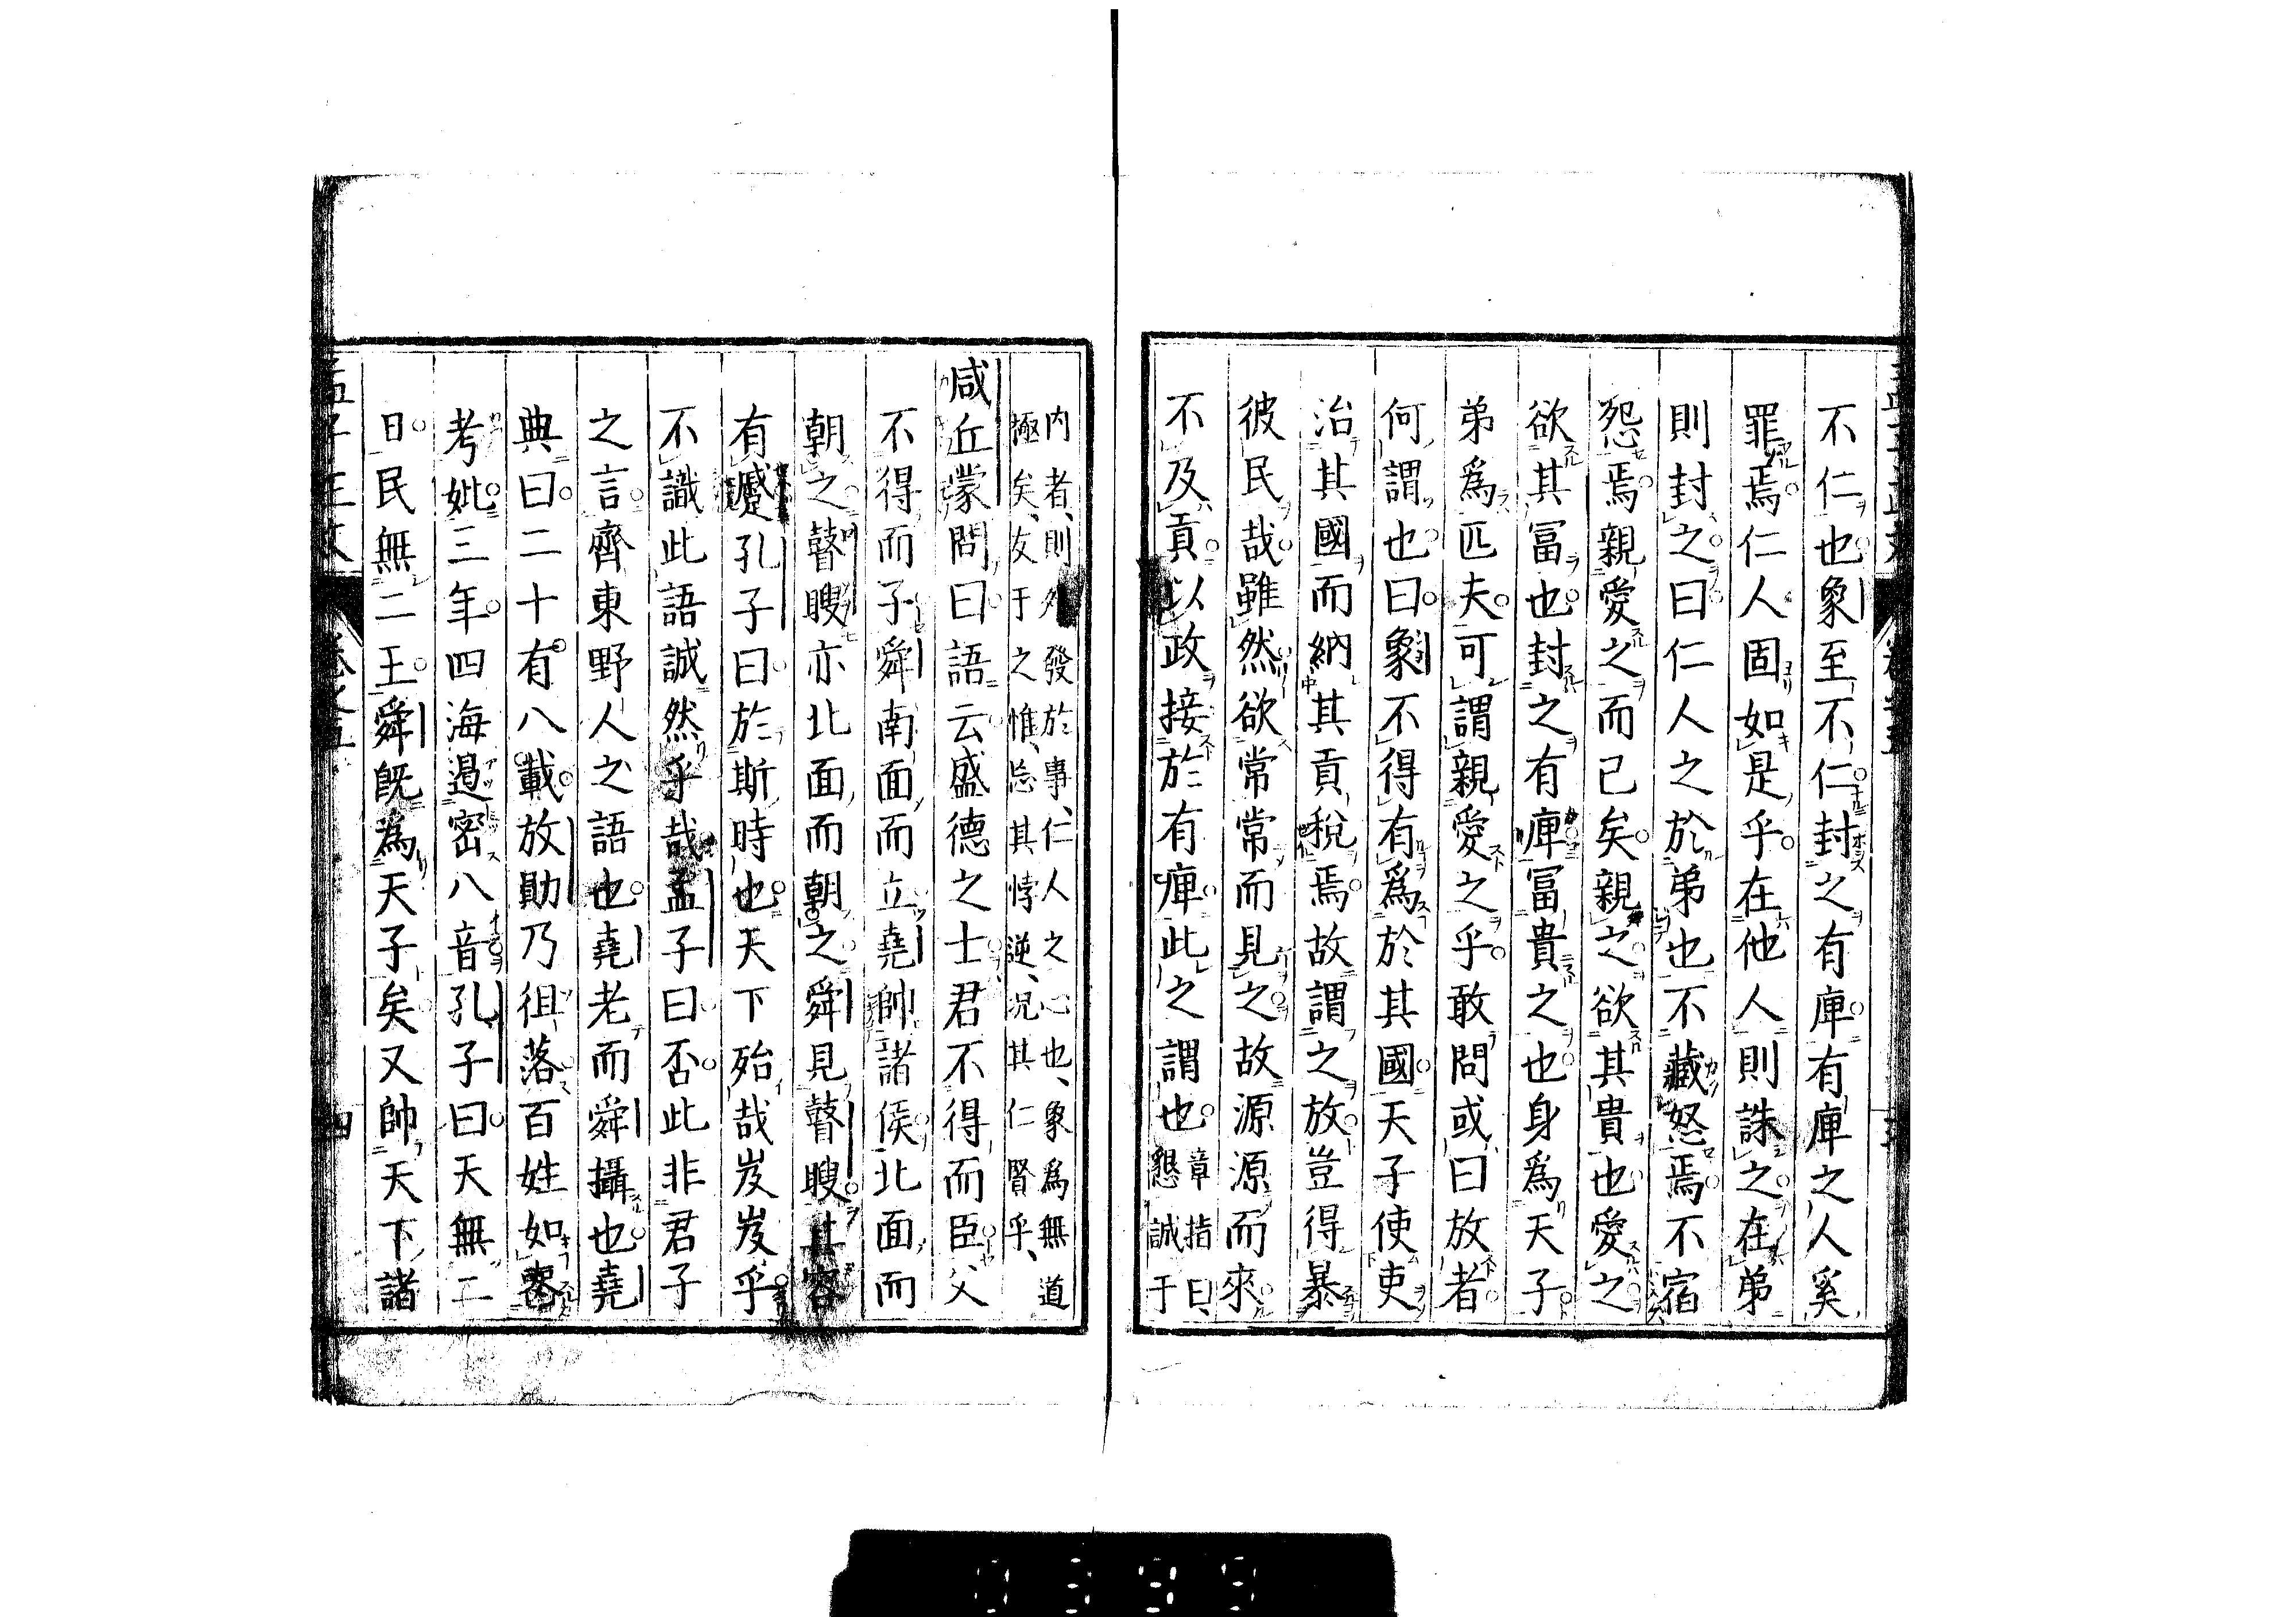 不仁也象至不仁封之有庳有庳之人奚
罪焉仁人固如是乎在他人則誅之在弟
則封之曰仁人之於弟也不藏怒焉不宿
怨焉親愛之而已矣親之欲其貴也愛之
欲其冨也封之有庳冨貴之也身爲天子
弟爲匹夫可謂親愛之乎敢問或曰放者
何謂也曰象不得有爲於其國天子使吏
治其國而納其貢稅焉故謂之放豈得暴
彼民哉雖然欲常常而見之故源源而來
不及貢以政接於有庳此之謂也章指曰、
懇誠于
内者、則外發於事、仁人之心也、象為無道
極矣、友于之惟、忘其悖逆、況其仁賢乎、
咸丘蒙問曰語云盛德之士君不得而臣父
不得而子舜南面而立堯帥諸侯北面而
朝之瞽瞍亦北面而朝之舜見瞽瞍其容
有蹙孔子曰於斯時也天下殆哉岌岌乎
不識此語誠然乎哉孟子曰否此非君子
之言齊東野人之語也堯老而舜攝也堯
典曰二十有八載放勛乃徂落百姓如喪
考妣三年四海遏密八音孔子曰天無二
日民無二王舜既為天子矣又帥天下諸
孟子正文
卷之五
四